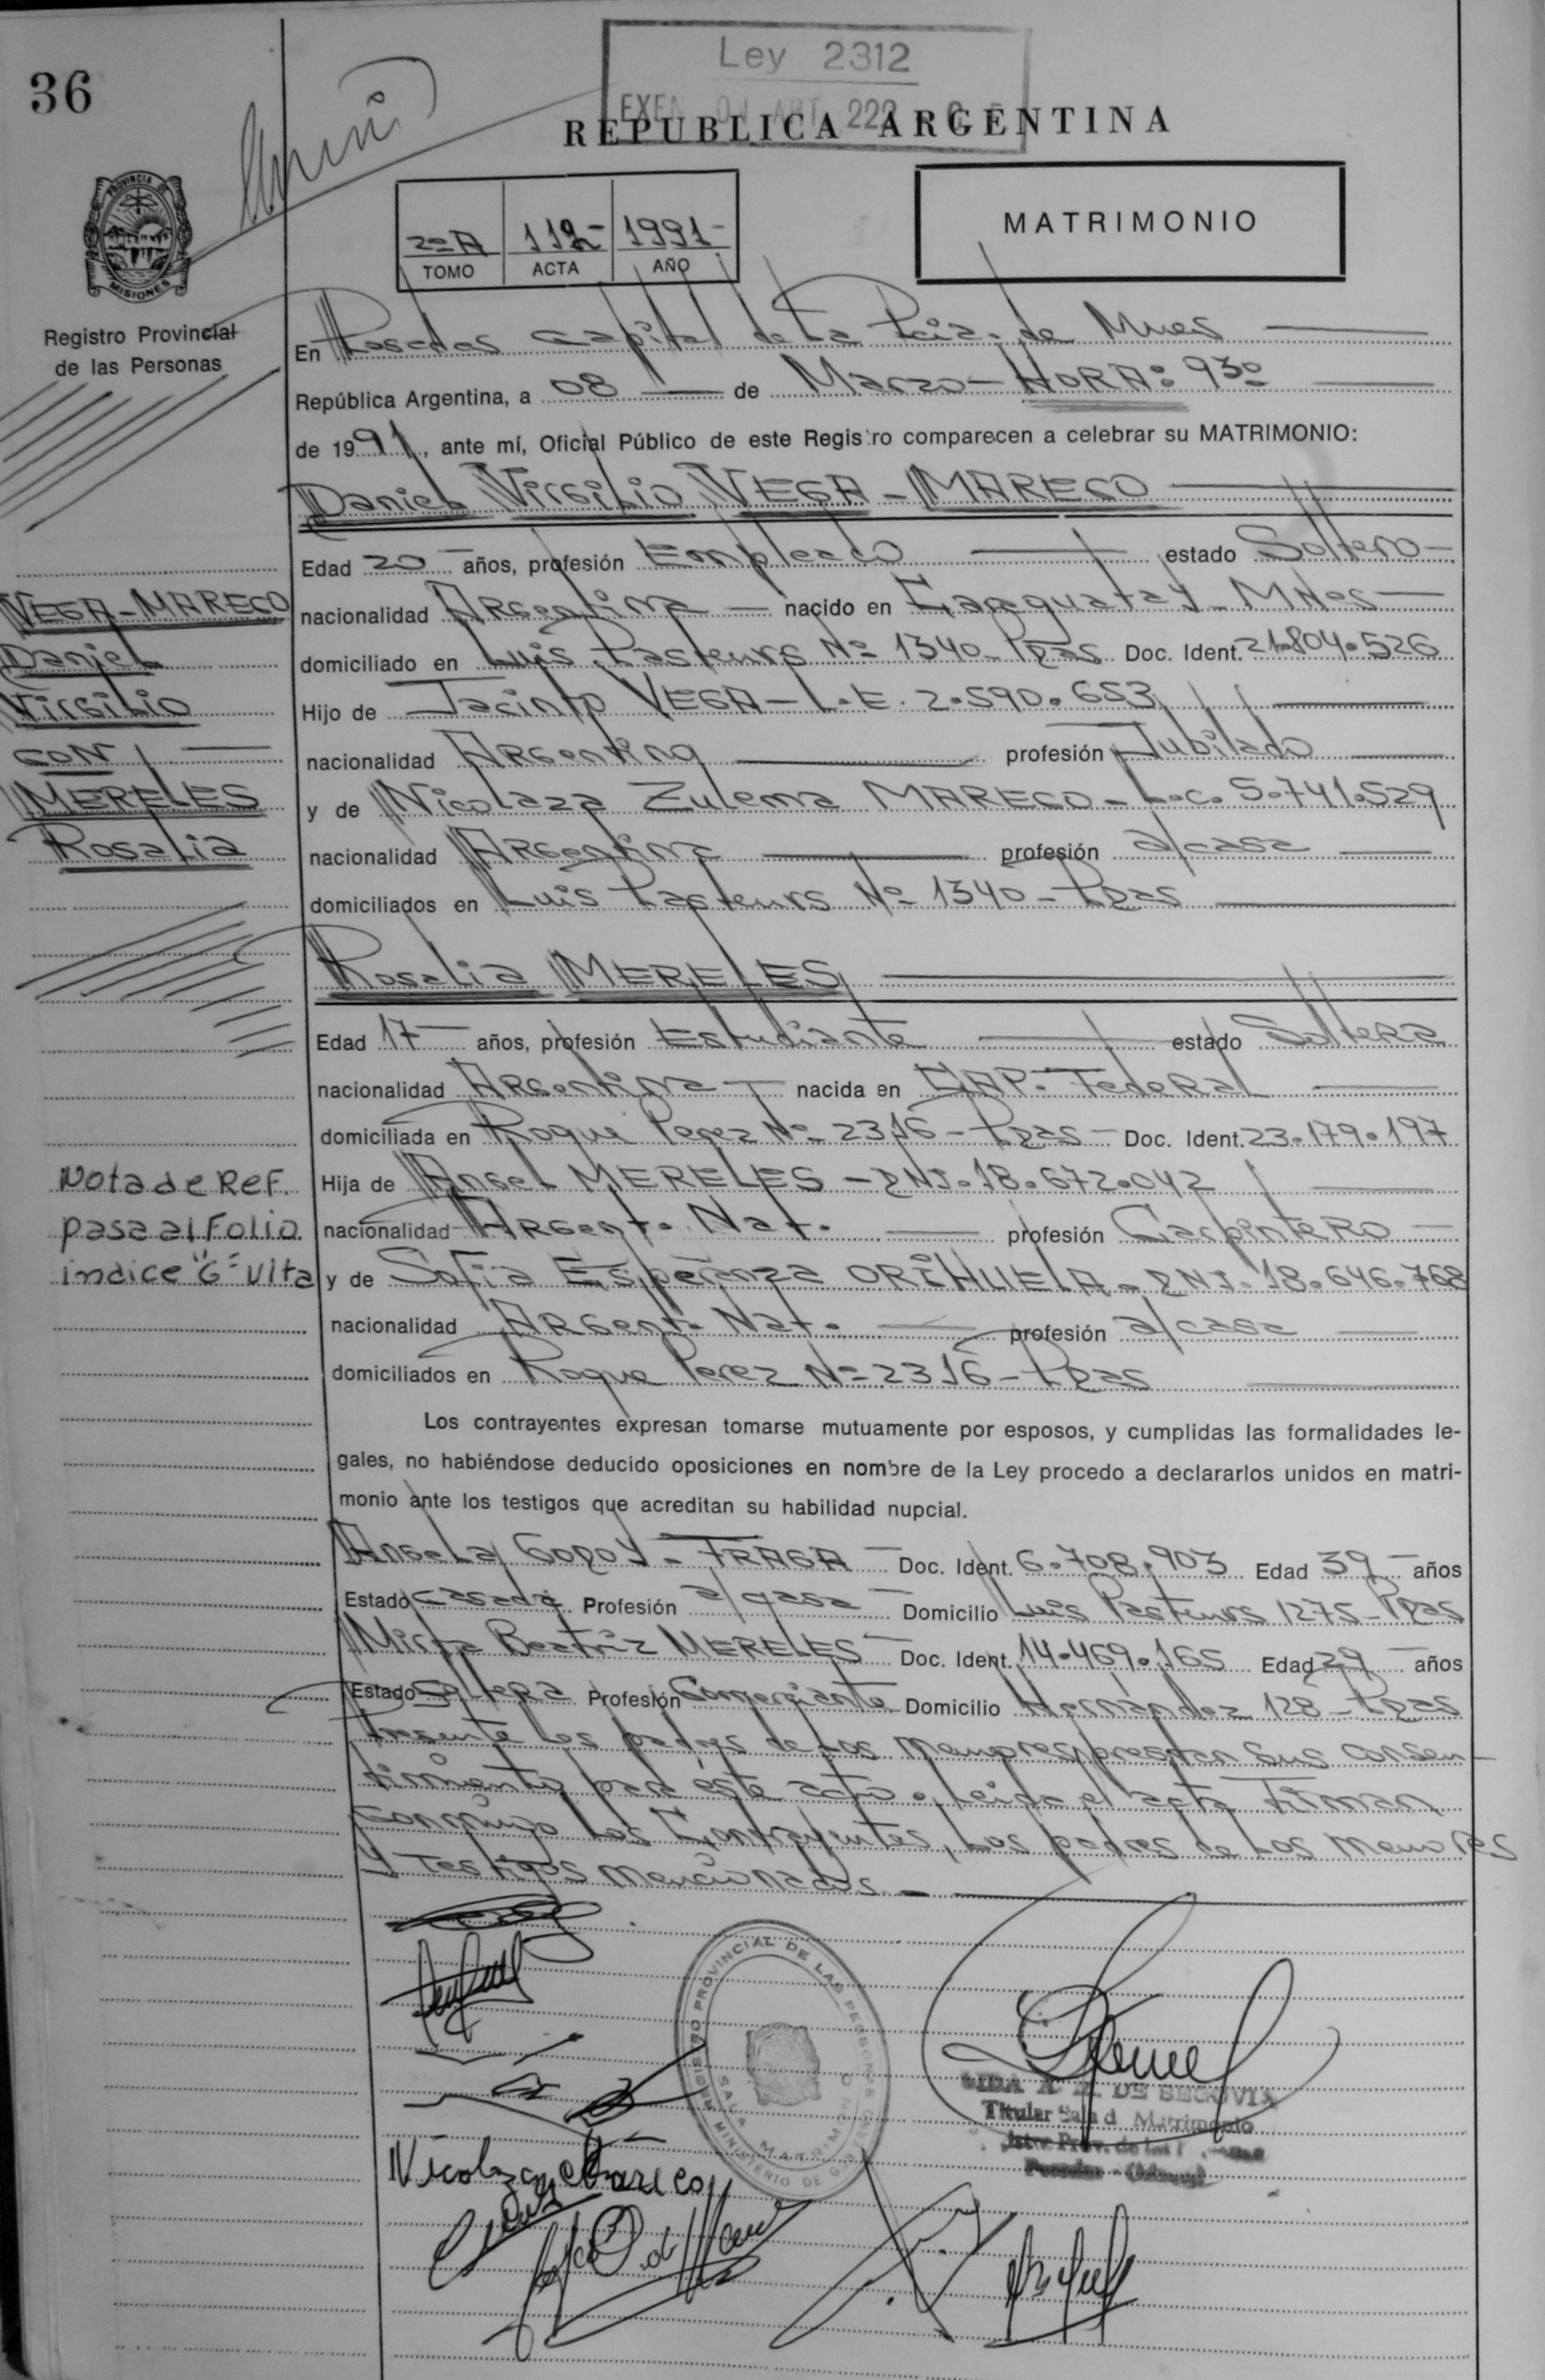 36
Ley 2312
REPUBLICA ARGENTINA
PROVINCIA DE
MISIONES
Registro Provincial
de las Personas
2º A 112 - 1991 -
TOMO ACTA AÑO
MATRIMONIO
En Posadas Capital de La Pcia. de Mnes
República Argentina, a 08 de Marzo - HORA: 9 30
de 1991, ante mí, Oficial Público de este Registro comparecen a celebrar su MATRIMONIO:
Daniel Virgilio VEGA - MARECO
Edad 20 años, profesión Empleado estado Soltero
nacionalidad Argentina nacido en Caraguatay - Mnes
domiciliado en Luis Pasteurs Nº 1340 - Pdas Doc. Ident. 21.804.526
Hijo de Jacinto VEGA - L.E. 2.590.653
nacionalidad Argentina profesión Jubilado
y de Nicolaza Zulema MARECO - L.C. 5.741.529
nacionalidad Argentina profesión a/casa
domiciliados en Luis Pasteurs Nº 1340 - Pdas
VEGA - MARECO
Daniel
Virgilio
CON
MERELES
Rosalia
Rosalia MERELES
Edad 17 años, profesión Estudiante estado Soltera
nacionalidad Argentina nacida en CAP. Federal
domiciliada en Roque Perez Nº 2316 - Pdas Doc. Ident. 23.179.197
Hija de Angel MERELES - DNI. 18.672.042
nacionalidad Argent. Nat. profesión Carpintero
y de Sofia Esperanza ORIHUELA - DNI. 18.646.768
nacionalidad Argent. Nat. profesión a/casa
domiciliados en Roque Perez Nº 2316 - Pdas
Nota de Ref.
pasa al Folio
indice "G" Vlta
Los contrayentes expresan tomarse mutuamente por esposos, y cumplidas las formalidades le-
gales, no habiéndose deducido oposiciones en nombre de la Ley procedo a declararlos unidos en matri-
monio ante los testigos que acreditan su habilidad nupcial.
Angela GODOY - FRAGA Doc. Ident. 6.708.903 Edad 39 años
Estado casada Profesión a/casa Domicilio Luis Pasteurs 1275 - Pdas
Mirta Beatriz MERELES Doc. Ident. 14.469.165 Edad 29 años
Estado Soltera Profesión Comerciante Domicilio Hernández 128 - Pdas
Presente los padres de los menores prestan sus consen-
timiento para este acto. Leida el acta Firman
conmigo los Contrayentes, los padres de los menores
y Testigos mencionados.
REGISTRO PROVINCIAL DE LAS PERSONAS
SALA MATRIMONIO
MINISTERIO DE GOBIERNO
DE SEGOVIA
Titular Sala d Matrimonio
Nicolaza Mareco